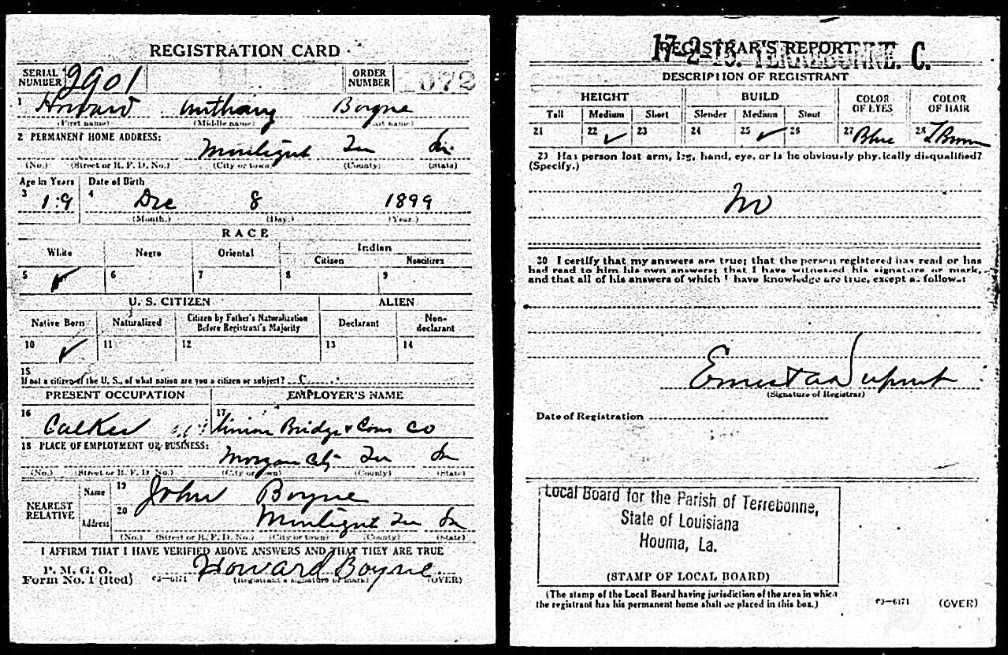 REGISTRATION CARD
SERIAL NUMBER 2901 ORDER NUMBER 072
1 Howard Anthany Boyne
(First name) (Middle name) (Last name)
2 PERMANENT HOME ADDRESS:
Montegut Ter La
(No.) (Street or R. F. D. No.) (City or town) (County) (State)
Age in Years Date of Birth
3 19 4 Dec 8 1899
(Month.) (Day.) (Year.)
RACE
White Negro Oriental Indian
Citizen Noncitizen
5 ✓ 6 7 8 9
U. S. CITIZEN ALIEN
Native Born Naturalized Citizen by Father's Naturalization Before Registrant's Majority Declarant Non-declarant
10 ✓ 11 12 13 14
15
If not a citizen of the U. S., of what nation are you a citizen or subject?
PRESENT OCCUPATION EMPLOYER'S NAME
16 Calker 17 Union Bridge & Cons Co
18 PLACE OF EMPLOYMENT OR BUSINESS:
Morgan City La
(No.) (Street or R. F. D. No.) (City or town) (County) (State)
NEAREST RELATIVE
Name 19 John Boyne
Address 20 Montegut Ter La
(No.) (Street or R. F. D. No.) (City or town) (County) (State)
I AFFIRM THAT I HAVE VERIFIED ABOVE ANSWERS AND THAT THEY ARE TRUE
P. M. G. O.
Form No. 1 (Red) 03-6171 Howard Boyne
(Registrant's signature or mark) (OVER)
17-2-18. TERREBONNE. C.
REGISTRAR'S REPORT
DESCRIPTION OF REGISTRANT
HEIGHT BUILD COLOR OF EYES COLOR OF HAIR
Tall Medium Short Slender Medium Stout
21 22 ✓ 23 24 25 ✓ 26 27 Blue 28 Brown
29 Has person lost arm, leg, hand, eye, or is he obviously physically disqualified?
(Specify.)
No
30 I certify that my answers are true; that the person registered has read or has
had read to him his own answers; that I have witnessed his signature or mark,
and that all of his answers of which I have knowledge are true, except as follows:
Ernest A Dupont
(Signature of Registrar)
Date of Registration
Local Board for the Parish of Terrebonne,
State of Louisiana
Houma, La.
(STAMP OF LOCAL BOARD)
(The stamp of the Local Board having jurisdiction of the area in which
the registrant has his permanent home shall be placed in this box.)
03-6171 (OVER)